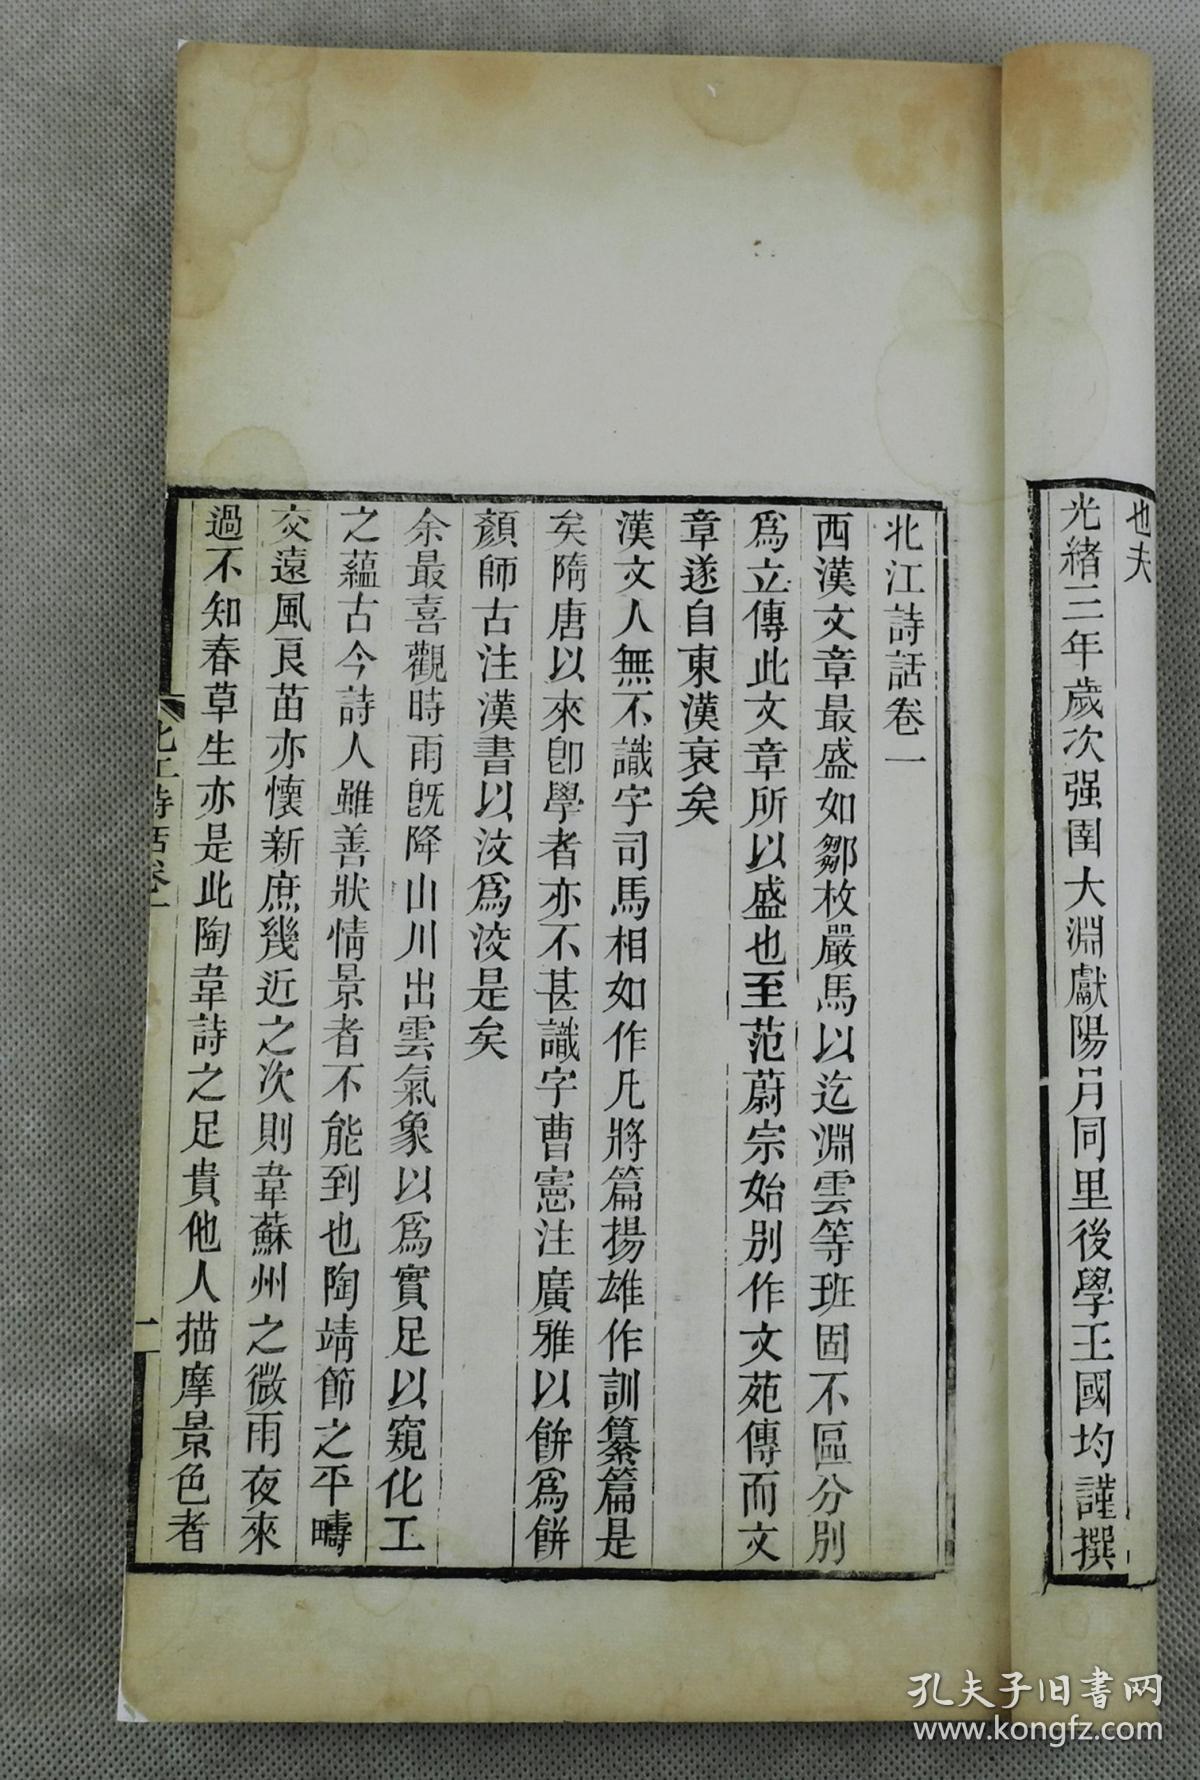 也夫
光緒三年歲次强圉大淵獻陽月同里後學王國均謹撰
北江詩話卷一
西漢文章最盛如鄒枚嚴馬以迄淵雲等班固不區分別
爲立傳此文章所以盛也至范蔚宗始別作文苑傳而文
章遂自東漢衰矣
漢文人無不識字司馬相如作凡將篇揚雄作訓纂篇是
矣隋唐以來卽學者亦不甚識字曹憲注廣雅以餠爲餅
顏師古注漢書以汶爲洨是矣
余最喜觀時雨旣降山川出雲氣象以爲實足以窺化工
之蘊古今詩人雖善狀情景者不能到也陶靖節之平疇
交遠風良苗亦懷新庶幾近之次則韋蘇州之微雨夜來
過不知春草生亦是此陶韋詩之足貴他人描摩景色者
北江詩話卷一
一
孔夫子旧书网
www.kongfz.com